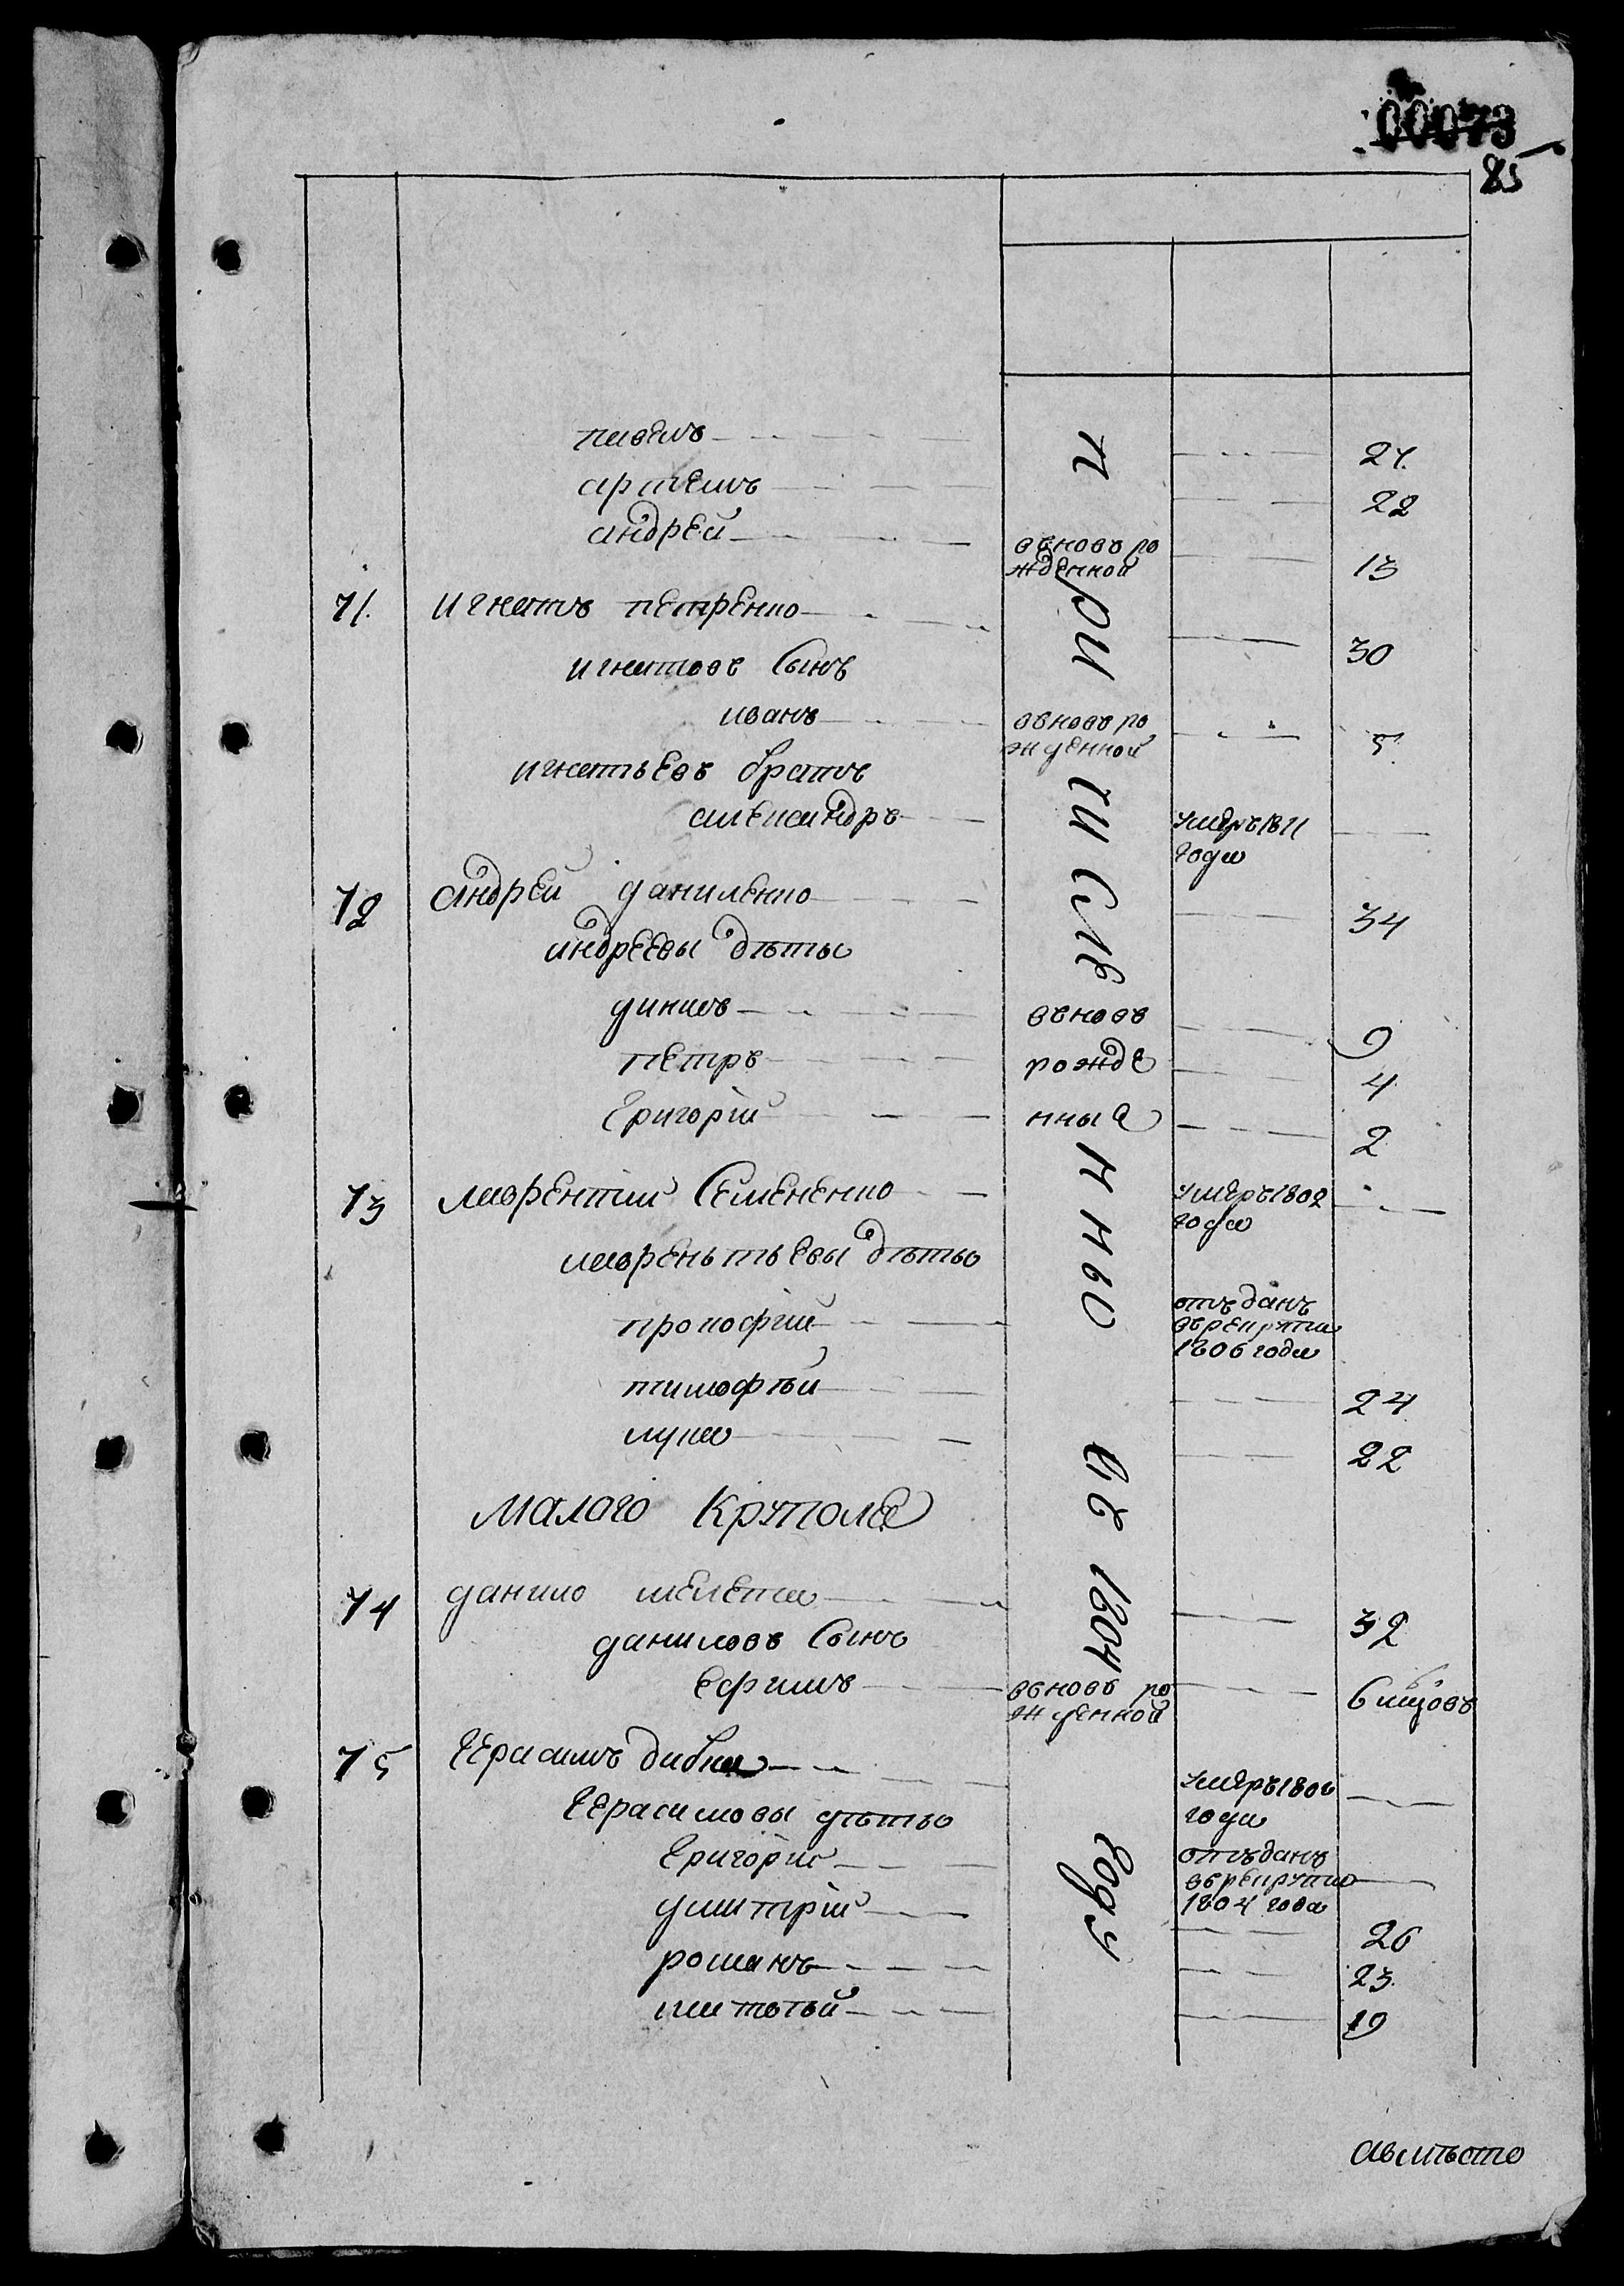 00073
85
павелъ 24.
артемъ 22
андрей вновъ рожденной 13
71. игнатъ петренко 30
игнатовъ сынъ
иванъ вновъ рожденной 5
игнатьевъ братъ
александръ умеръ 1811 года
72 андрей даниленко 34
андреевы дѣты
данило вновъ 9
петръ рожде 4
григорій нные 2
73 лаврентий семененко умеръ 1802 года
лаврентьевы дѣты
прокофій отъданъ врекруты 1806 года
тимофѣй 24
лука 22
Малого Круполя
74 данило 32
даниловъ сынъ
ефимъ вновъ рожденной 6 мцовъ
75 герасимъ умеръ 1806 года
герасимовы дѣты
григорій отъданъ врекруты 1804 года
дмитрій 26
романъ 23.
матвѣй 19
причисленные въ 1804 году
авмѣсто